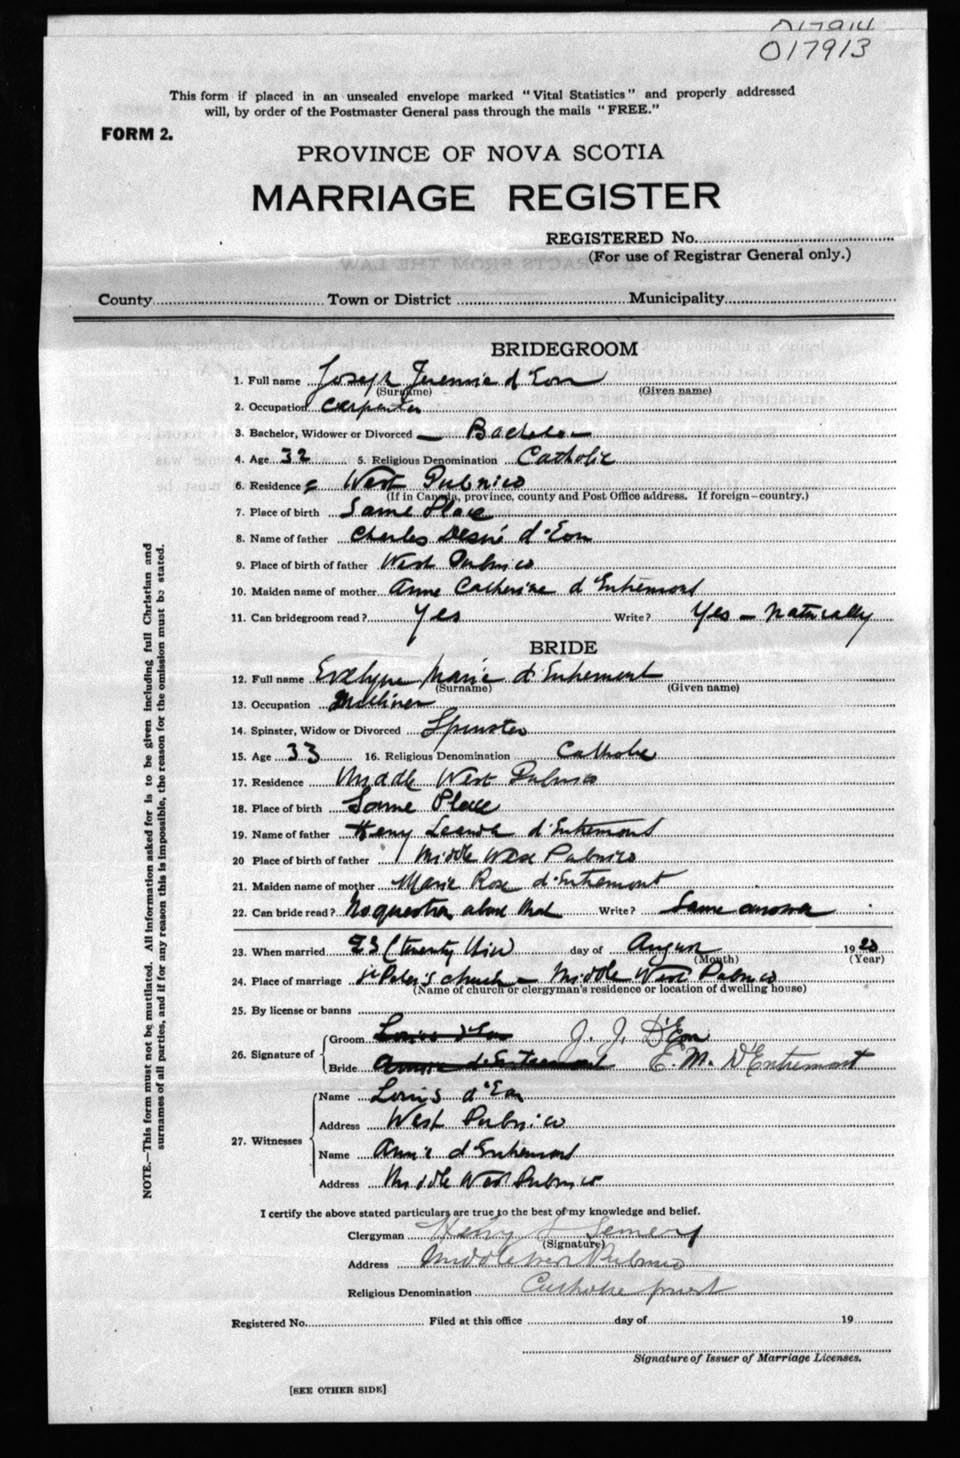 017914
017913
This form if placed in an unsealed envelope marked "Vital Statistics" and properly addressed
will, by order of the Postmaster General pass through the mails "FREE."
FORM 2.
PROVINCE OF NOVA SCOTIA
MARRIAGE REGISTER
REGISTERED No.
(For use of Registrar General only.)
County Town or District Municipality
BRIDEGROOM
1. Full name Joseph Jeremie d'Eon
(Surname) (Given name)
2. Occupation Carpenter
3. Bachelor, Widower or Divorced — Bachelor
4. Age 32 5. Religious Denomination Catholic
6. Residence West Pubnico
(If in Canada, province, county and Post Office address. If foreign—country.)
7. Place of birth Same Place
8. Name of father Charles Desiré d'Eon
9. Place of birth of father West Pubnico
10. Maiden name of mother Anne Catherine d'Entremont
11. Can bridegroom read? Yes Write? Yes — Naturally
BRIDE
12. Full name Evelyne Marie d'Entremont
(Surname) (Given name)
13. Occupation Milliner
14. Spinster, Widow or Divorced Spinster
15. Age 33 16. Religious Denomination Catholic
17. Residence Middle West Pubnico
18. Place of birth Same Place
19. Name of father Henry Leandre d'Entremont
20 Place of birth of father Middle West Pubnico
21. Maiden name of mother Marie Rose d'Entremont
22. Can bride read? No question about that Write? Same answer
23. When married 23 (twenty day of August 1920
(Month) (Year)
24. Place of marriage St Peter's church — Middle West Pubnico
(Name of church or clergyman's residence or location of dwelling house)
25. By license or banns
26. Signature of Groom Louis d'Eon J. J. D'Eon
Bride Annie d'Entremont E. M. D'Entremont
27. Witnesses
Name Louis d'Eon
Address West Pubnico
Name Annie d'Entremont
Address Middle West Pubnico
I certify the above stated particulars are true to the best of my knowledge and belief.
Clergyman Henry
(Signature)
Address Middle West Pubnico
Religious Denomination Catholic priest
Registered No. Filed at this office day of 19
Signature of Issuer of Marriage Licenses.
[SEE OTHER SIDE]
NOTE.—This form must not be mutilated. All information asked for is to be given including full Christian and
surnames of all parties, and if for any reason this is impossible, the reason for the omission must be stated.